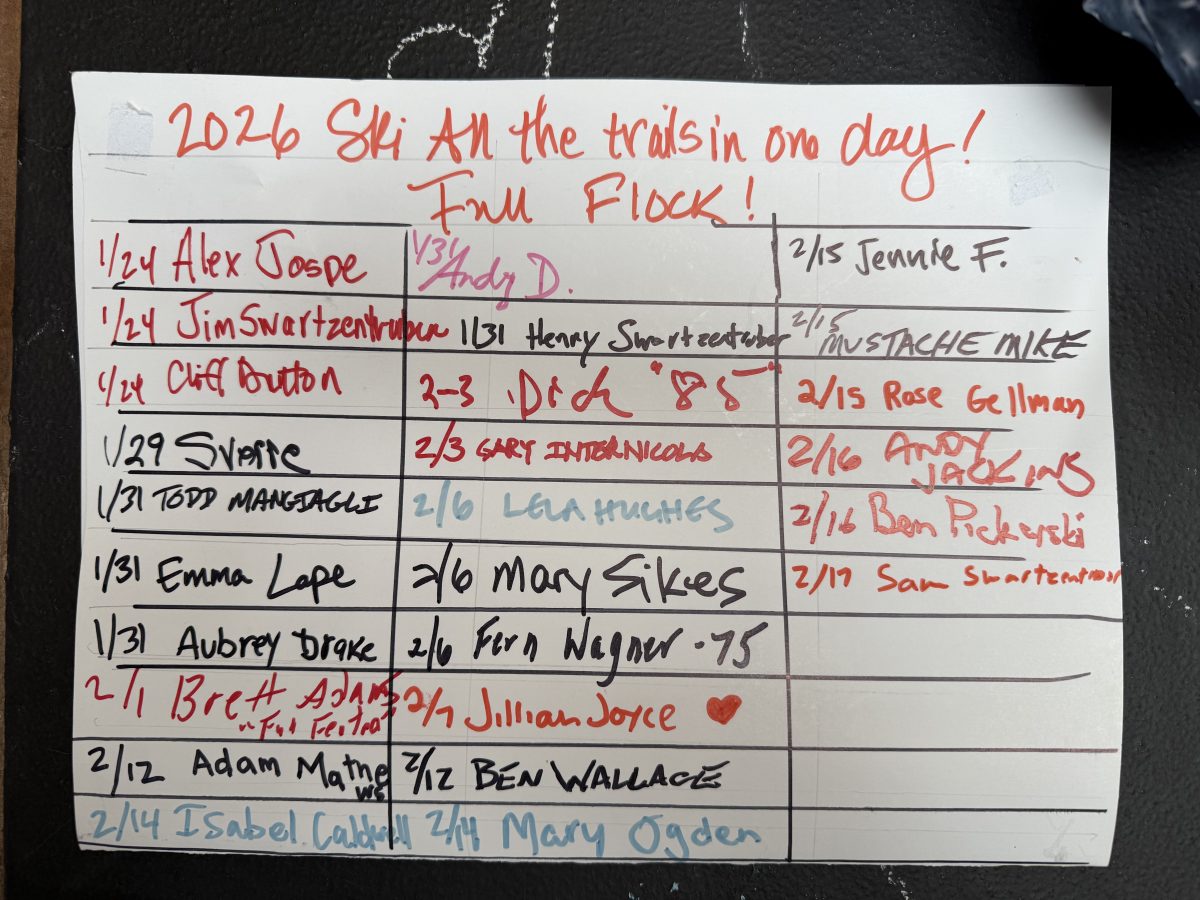 2026 Ski All the trails in one day!
Full Flock!
1/24 Alex Jospe
1/24 Jim Swartzentruber
1/24 Cliff Button
1/29 Sverre
1/31 TODD MANGIAGLI
1/31 Emma Lape
1/31 Aubrey Drake
2/1 Brett Adams
2/12 Adam Mathews
2/14 Isabel Caldwell
1/31 Andy D.
1/31 Henry Swartzentruber
2-3 Dick "85"
2/3 GARY INTERNICOLA
2/6 LELA HUGHES
2/6 Mary Sikes
2/6 Fern Wagner - 75
2/7 Jillian Joyce ♥
2/12 BEN WALLACE
2/14 Mary Ogden
2/15 Jennie F.
2/15 MUSTACHE MIKE
2/15 Rose Gellman
2/16 ANDY JACKINS
2/16 Ben
2/17 Sam Swartzentruber